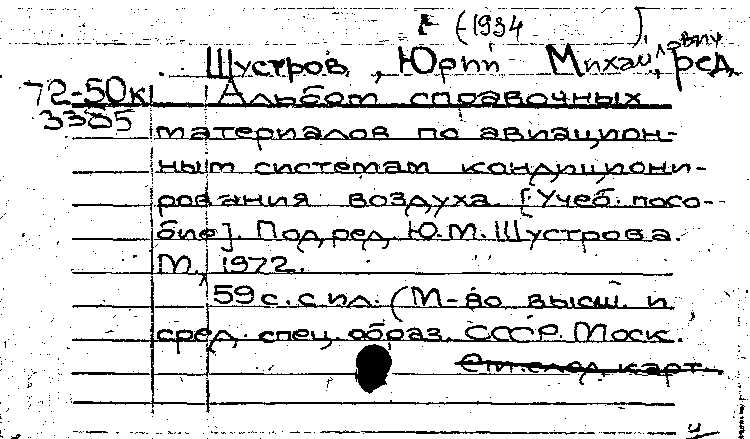 (-1934 ),
Шустров, Юрий Михайлович, ред.
72-50к Альбом справочных
3385 материалов по авиацион-
ным системам кондициони-
рования воздуха. [Учеб. посо-
бие]. Под ред. Ю.М. Шустрова.
М., 1972.
59 с. с ил. (М-во высш. и
сред. спец. образ. СССР. Моск.
См. след. карт.